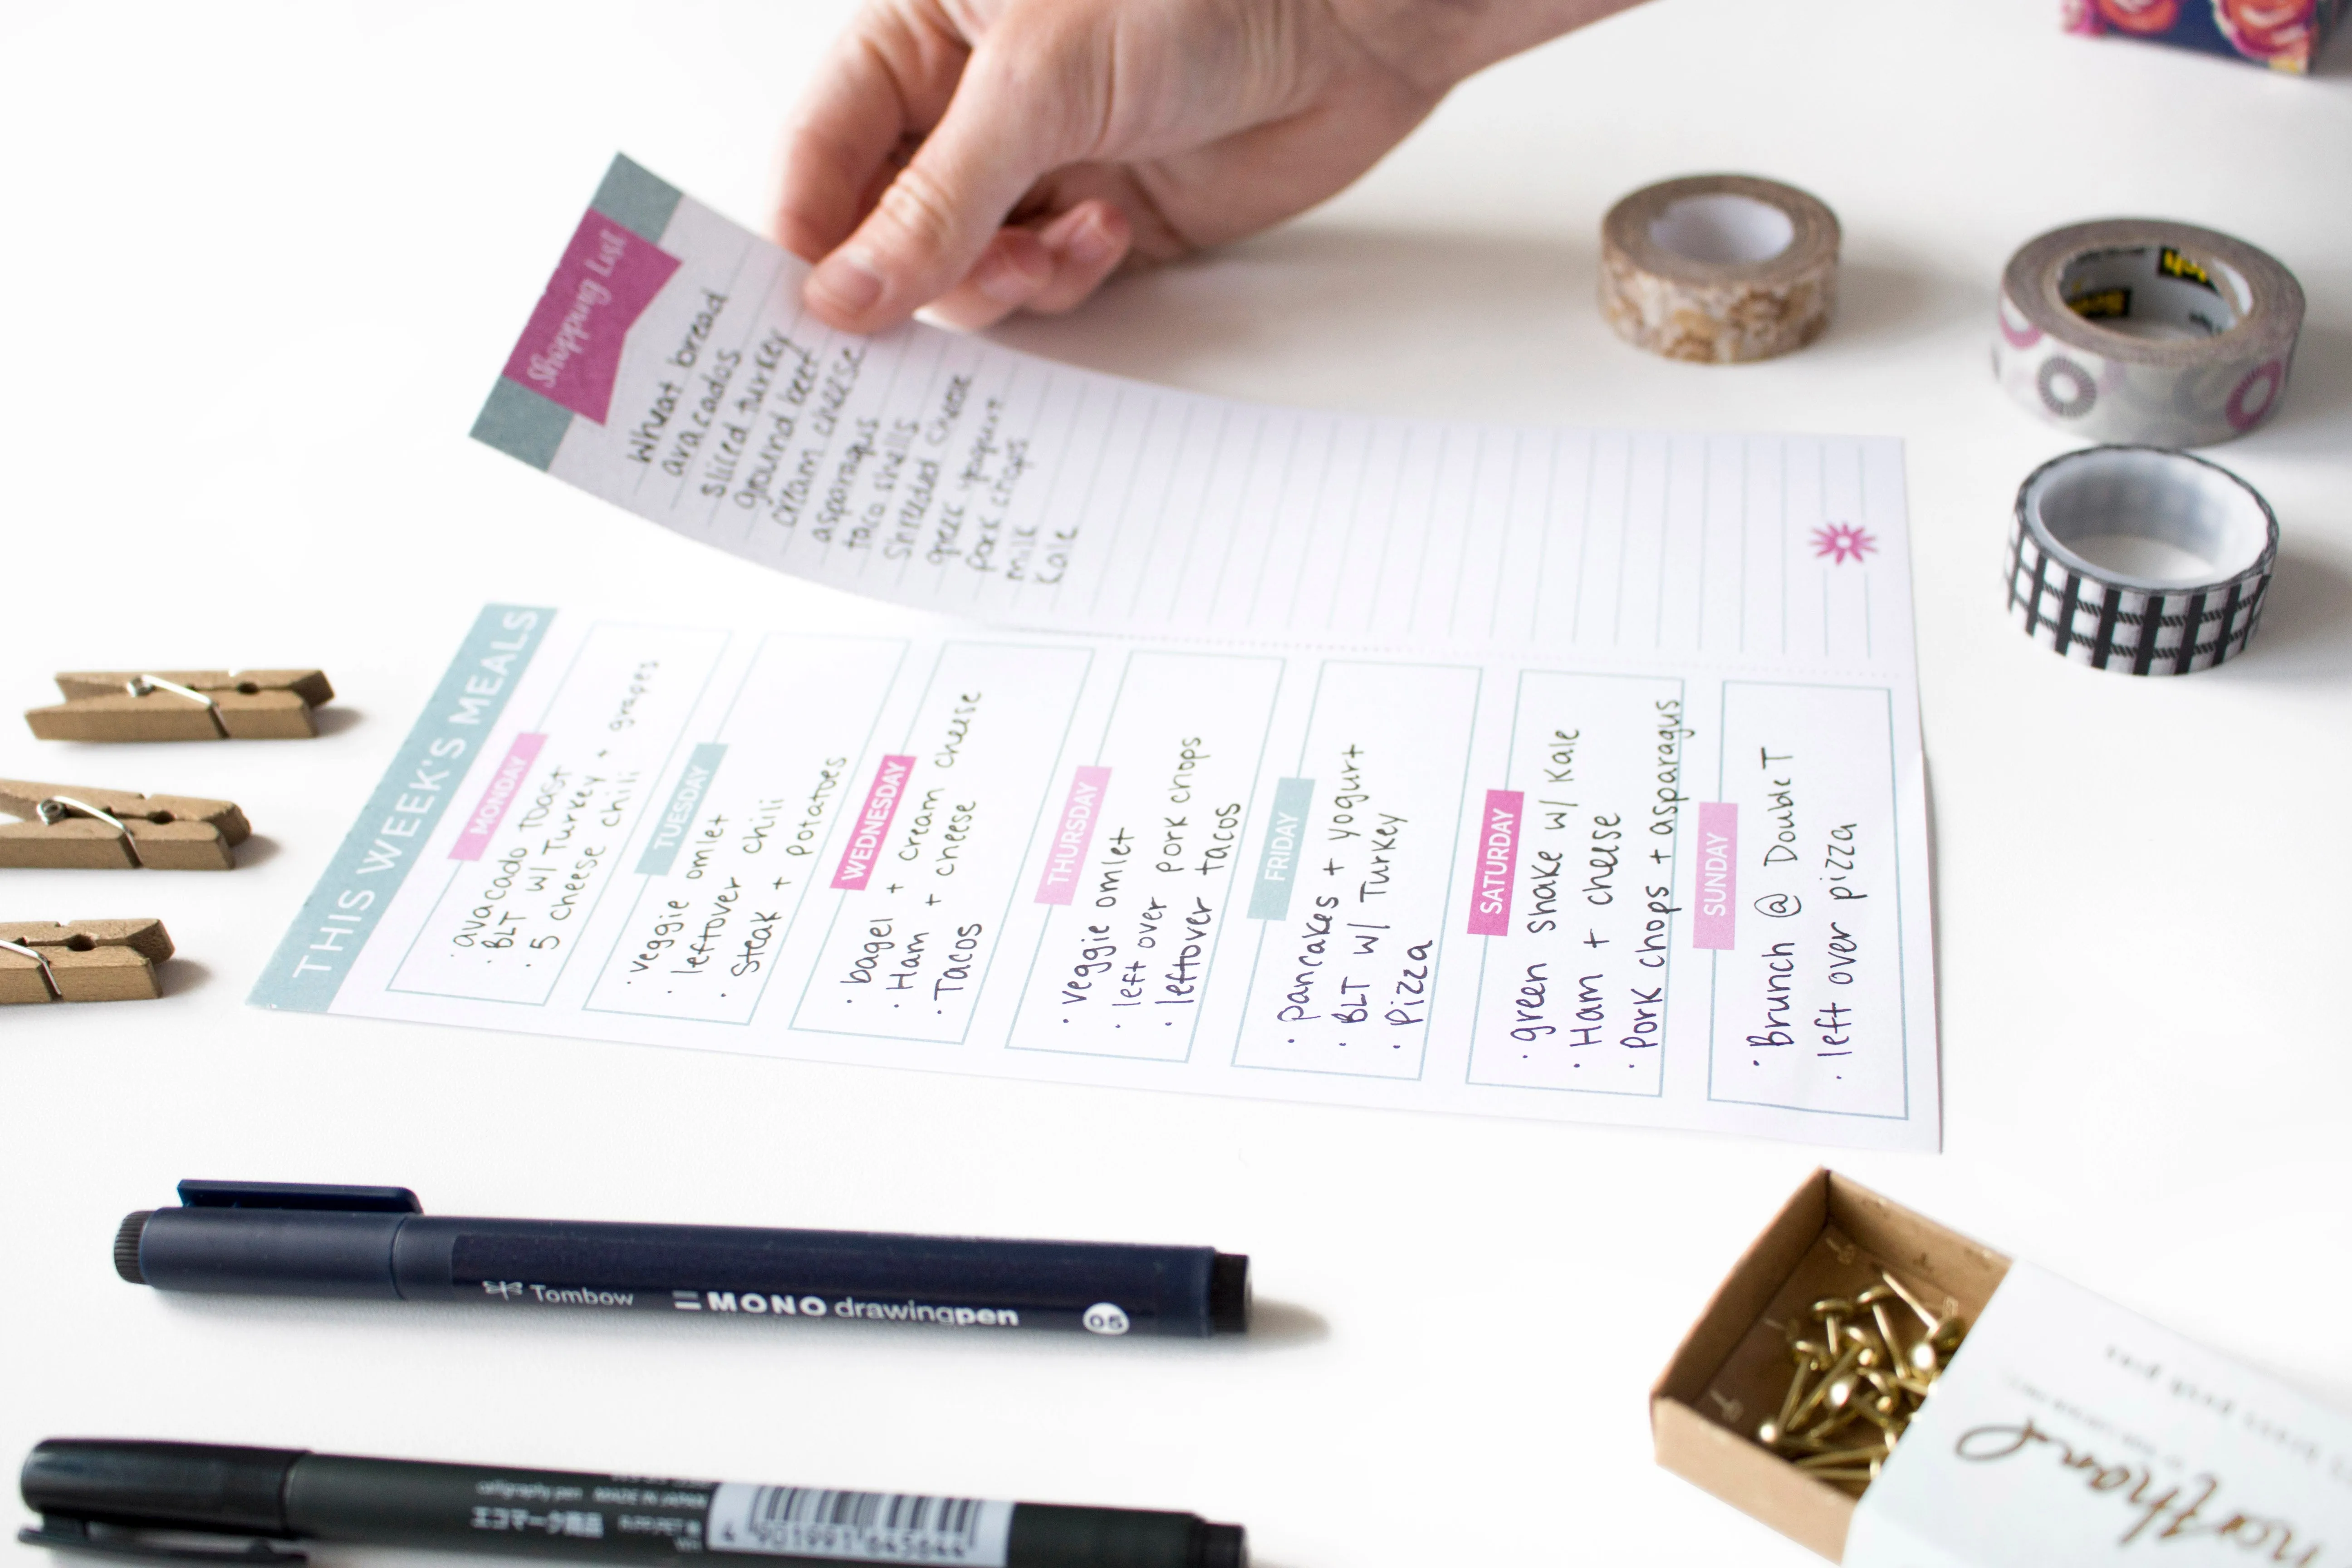 Shopping List
Wheat bread
avacados
sliced turkey
ground beef
cream cheese
asparagus
taco shells
shreeded cheese
greek yogurt
pork chops
milk
Kale
THIS WEEK'S MEALS
MONDAY
· avacado toast
· BLT w/ Turkey + grapes
· 5 cheese chili
TUESDAY
· veggie omlet
· leftover chili
· Steak + potatoes
WEDNESDAY
· bagel + cream cheese
· Ham + cheese
· Tacos
THURSDAY
· veggie omlet
· left over pork chops
· leftover tacos
FRIDAY
· pancakes + yogurt
· BLT w/ Turkey
· Pizza
SATURDAY
· green shake w/ Kale
· Ham + cheese
· Pork chops + asparagus
SUNDAY
· Brunch @ Double T
· left over pizza
Tombow MONO drawingpen 05
calligraphy pen MADE IN JAPAN
エコマーク商品
4 901991 645644